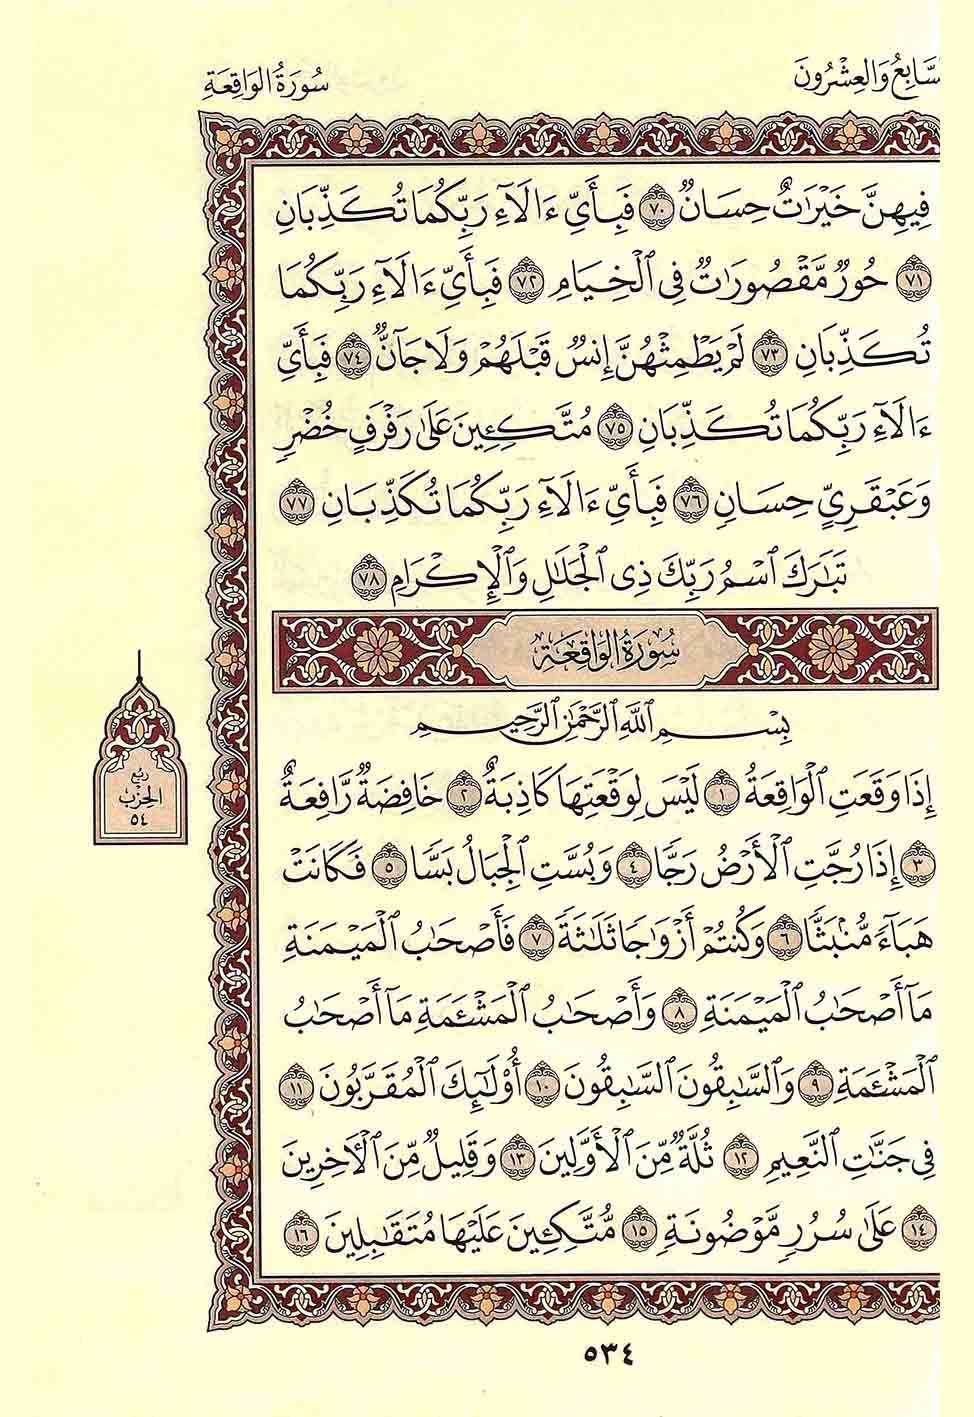 سَّابِعُ وَالعِشْرُونَ
سُورَةُ الوَاقِعَةِ
فِيهِنَّ خَيْرَٰتٌ حِسَانٌ ٧٠ فَبِأَيِّ ءَالَآءِ رَبِّكُمَا تُكَذِّبَانِ
٧١ حُورٌ مَّقْصُورَٰتٌ فِي ٱلْخِيَامِ ٧٢ فَبِأَيِّ ءَالَآءِ رَبِّكُمَا
تُكَذِّبَانِ ٧٣ لَمْ يَطْمِثْهُنَّ إِنسٌ قَبْلَهُمْ وَلَا جَآنٌّ ٧٤ فَبِأَيِّ
ءَالَآءِ رَبِّكُمَا تُكَذِّبَانِ ٧٥ مُتَّكِـِٔينَ عَلَىٰ رَفْرَفٍ خُضْرٍ
وَعَبْقَرِيٍّ حِسَانٍ ٧٦ فَبِأَيِّ ءَالَآءِ رَبِّكُمَا تُكَذِّبَانِ ٧٧
تَبَٰرَكَ ٱسْمُ رَبِّكَ ذِي ٱلْجَلَٰلِ وَٱلْإِكْرَامِ ٧٨
سُورَةُ الوَاقِعَةِ
بِسْمِ ٱللَّهِ ٱلرَّحْمَٰنِ ٱلرَّحِيمِ
إِذَا وَقَعَتِ ٱلْوَاقِعَةُ ١ لَيْسَ لِوَقْعَتِهَا كَاذِبَةٌ ٢ خَافِضَةٌ رَّافِعَةٌ
٣ إِذَا رُجَّتِ ٱلْأَرْضُ رَجًّا ٤ وَبُسَّتِ ٱلْجِبَالُ بَسًّا ٥ فَكَانَتْ
هَبَآءً مُّنۢبَثًّا ٦ وَكُنتُمْ أَزْوَٰجًا ثَلَٰثَةً ٧ فَأَصْحَٰبُ ٱلْمَيْمَنَةِ
مَآ أَصْحَٰبُ ٱلْمَيْمَنَةِ ٨ وَأَصْحَٰبُ ٱلْمَشْـَٔمَةِ مَآ أَصْحَٰبُ
ٱلْمَشْـَٔمَةِ ٩ وَٱلسَّٰبِقُونَ ٱلسَّٰبِقُونَ ١٠ أُو۟لَٰٓئِكَ ٱلْمُقَرَّبُونَ ١١
فِي جَنَّٰتِ ٱلنَّعِيمِ ١٢ ثُلَّةٌ مِّنَ ٱلْأَوَّلِينَ ١٣ وَقَلِيلٌ مِّنَ ٱلْءَاخِرِينَ
١٤ عَلَىٰ سُرُرٍ مَّوْضُونَةٍ ١٥ مُّتَّكِـِٔينَ عَلَيْهَا مُتَقَٰبِلِينَ ١٦
رُبْع
الحِزْب
٥٤
٥٣٤